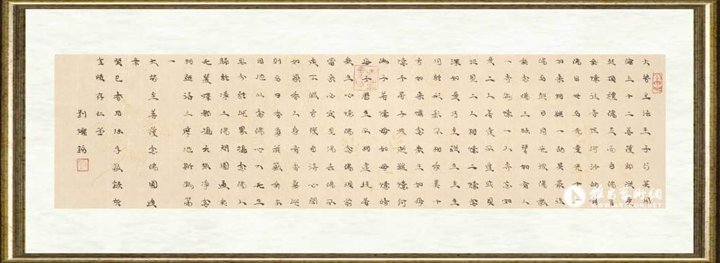 大勢至法王子与其同
倫五十二菩薩即從座
起頂禮佛足而白佛言
我憶往昔恆河沙劫有
佛出世名無量光十二
如來相繼一劫其最後
佛名超日月光彼佛教
我念佛三昧譬如有人
一專為憶一人專忘如
是二人若逢不逢或見
非見二人相憶二憶念
深如是乃至從生至生
同於形影不相乖異十
方如來憐念眾生如母
憶子若子逃逝雖憶何
為子若憶母如母憶時
母子歷生不相違遠若
眾生心憶佛念佛現前
當來必定見佛去佛不
遠不假方便自得心開
如染香人身有香氣此
則名曰香光莊嚴我本
因地以念佛心入無生
忍今於此界攝念佛人
歸於淨土佛問圓通我
無選擇都攝六根淨念
相繼得三摩地斯為第
一
大勢至菩薩念佛圓通
章
癸巳春月沐手敬錄於
劉